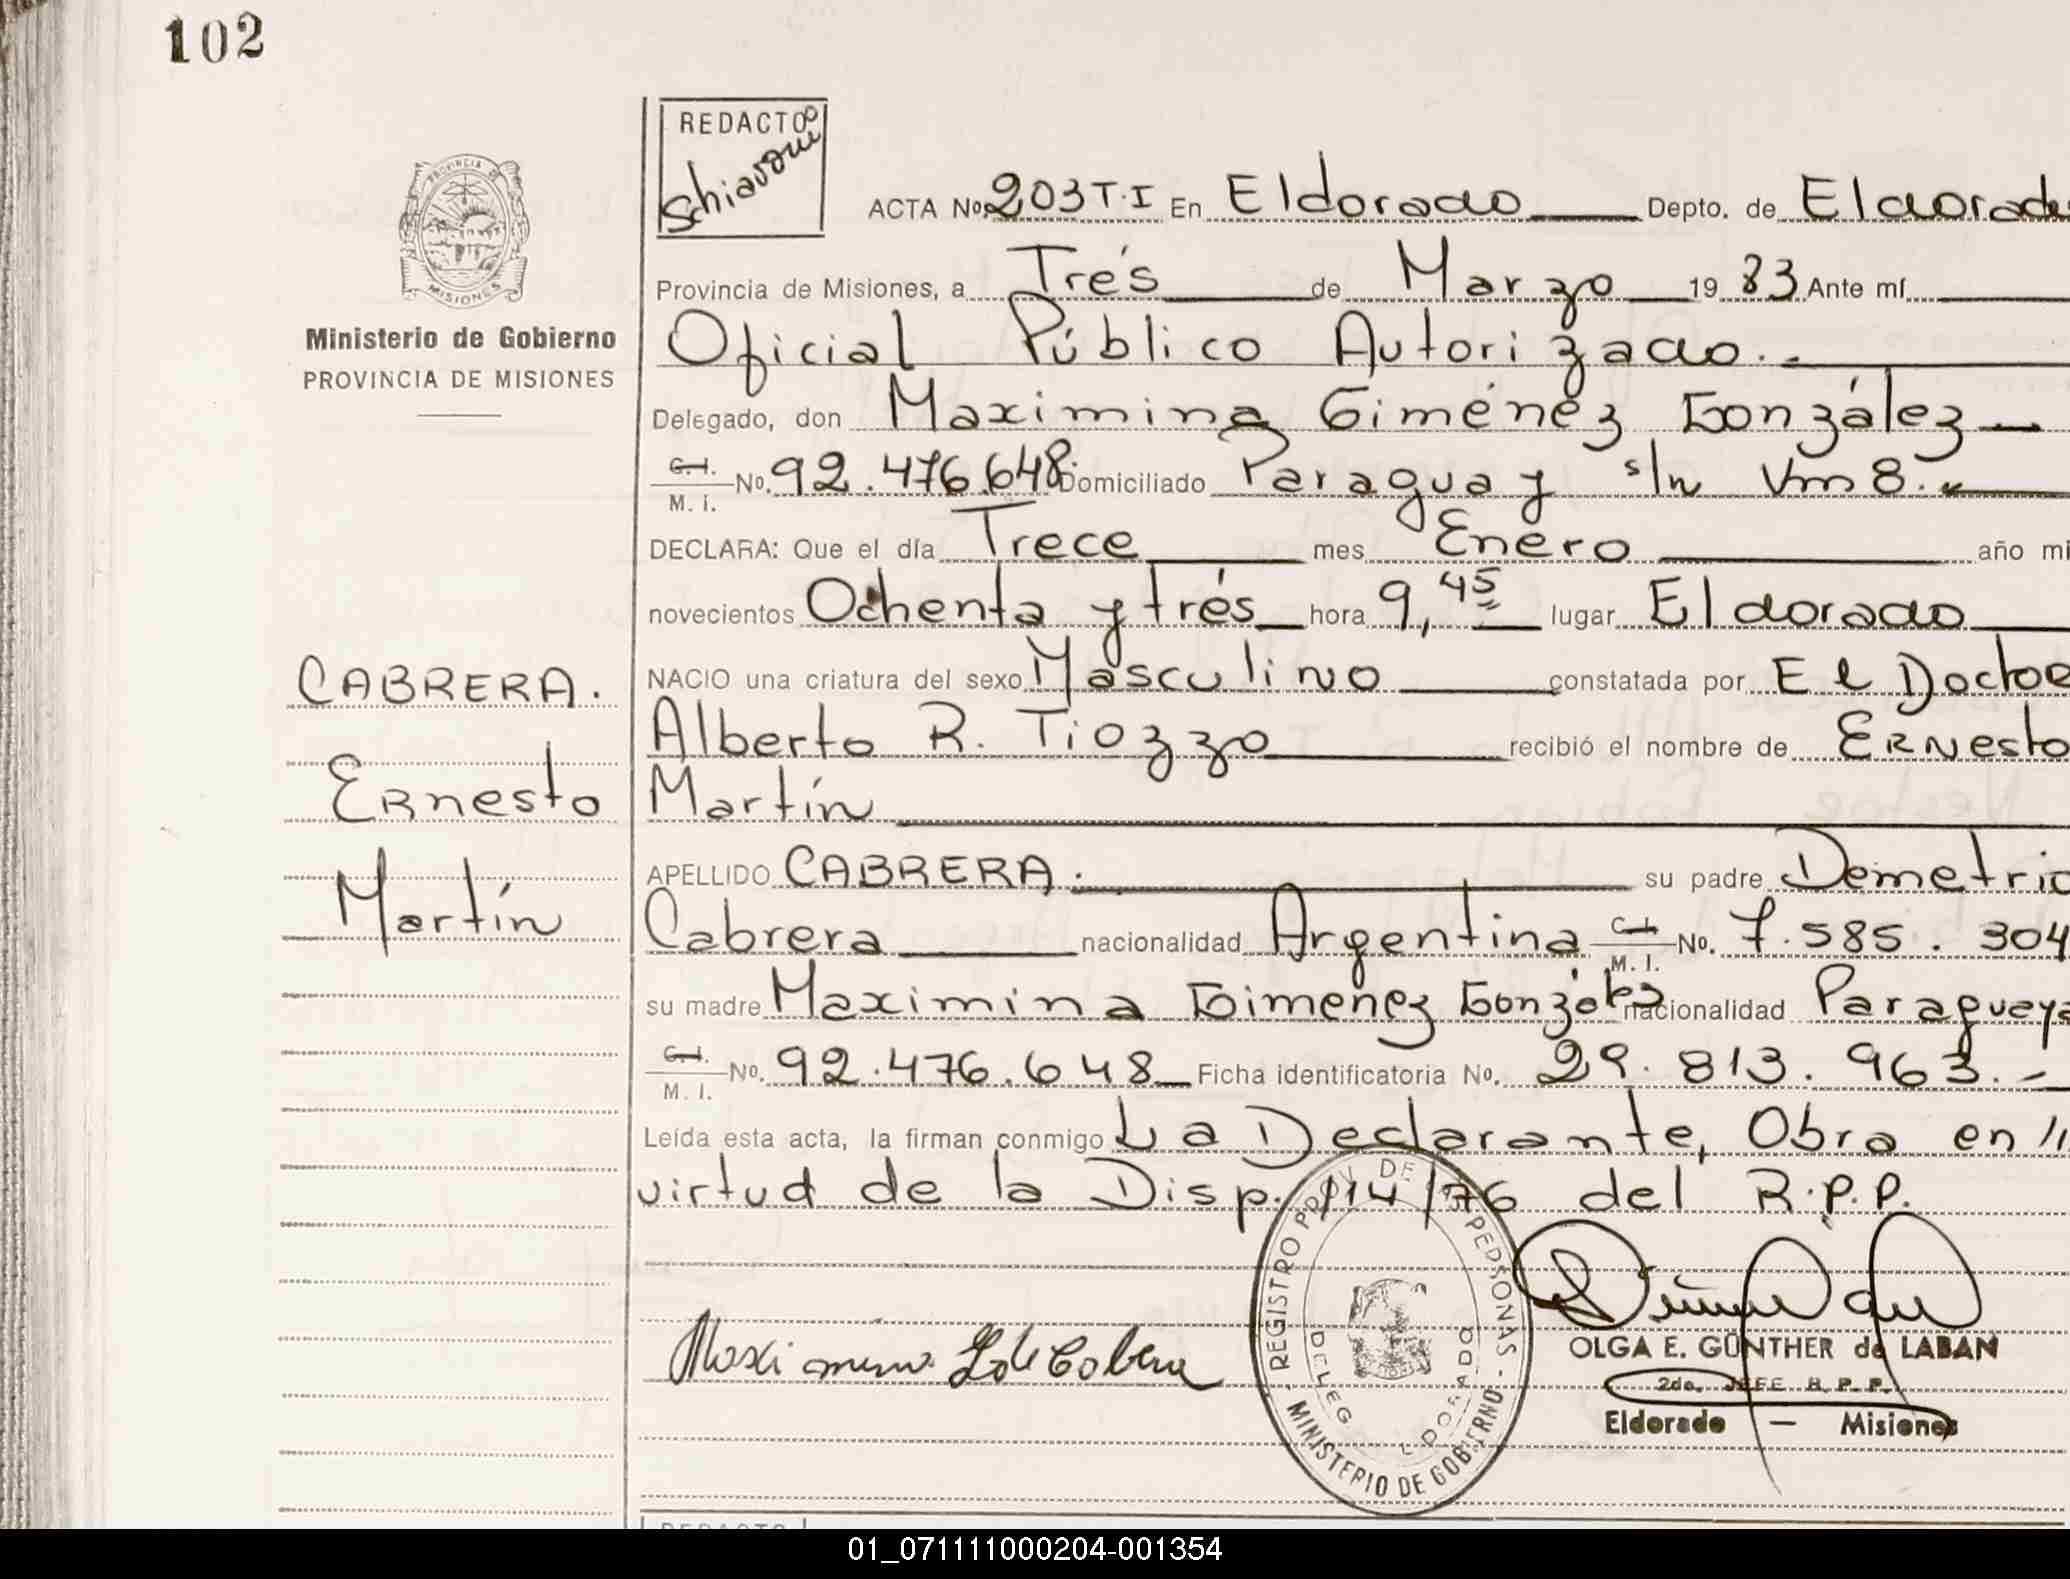 102
REDACTO
Schiavoni
ACTA No. 203 T·I En Eldorado Depto. de Eldorado
PROVINCIA DE
MISIONES
Ministerio de Gobierno
PROVINCIA DE MISIONES
Provincia de Misiones, a Trés de Marzo 19 83 Ante mí
Oficial Público Autorizado.-
Delegado, don Maximina Giménéz González
C.I. M. I. No. 92.476.648. Domiciliado Paraguay s/n Vm 8.-
DECLARA: Que el día Trece mes Enero año mi
novecientos Ochenta y trés hora 9,45 lugar Eldorado
CABRERA.
Ernesto
Martín
NACIO una criatura del sexo Masculino constatada por El Doctor
Alberto R. Tiozzo recibió el nombre de Ernesto
Martín
APELLIDO CABRERA. su padre Demetrio
Cabrera nacionalidad Argentina C.I. M. I. No. 7.585.304
su madre Maximina Gimenez González nacionalidad Paraguaya
C.I. M. I. No. 92.476.648 Ficha identificatoria No. 29.813.963.-
Leída esta acta, la firman conmigo La Declarante, Obra en //
virtud de la Disp. 114/76 del R.P.P.
REGISTRO PROV. DE LAS PERSONAS - MINISTERIO DE GOBIERNO -
DELEG ELDORADO
Maximina G de Cabrera
OLGA E. GÜNTHER de LABAN
2do. JEFE R. P. P.
Eldorado — Misiones
REDACTO
01_071111000204-001354